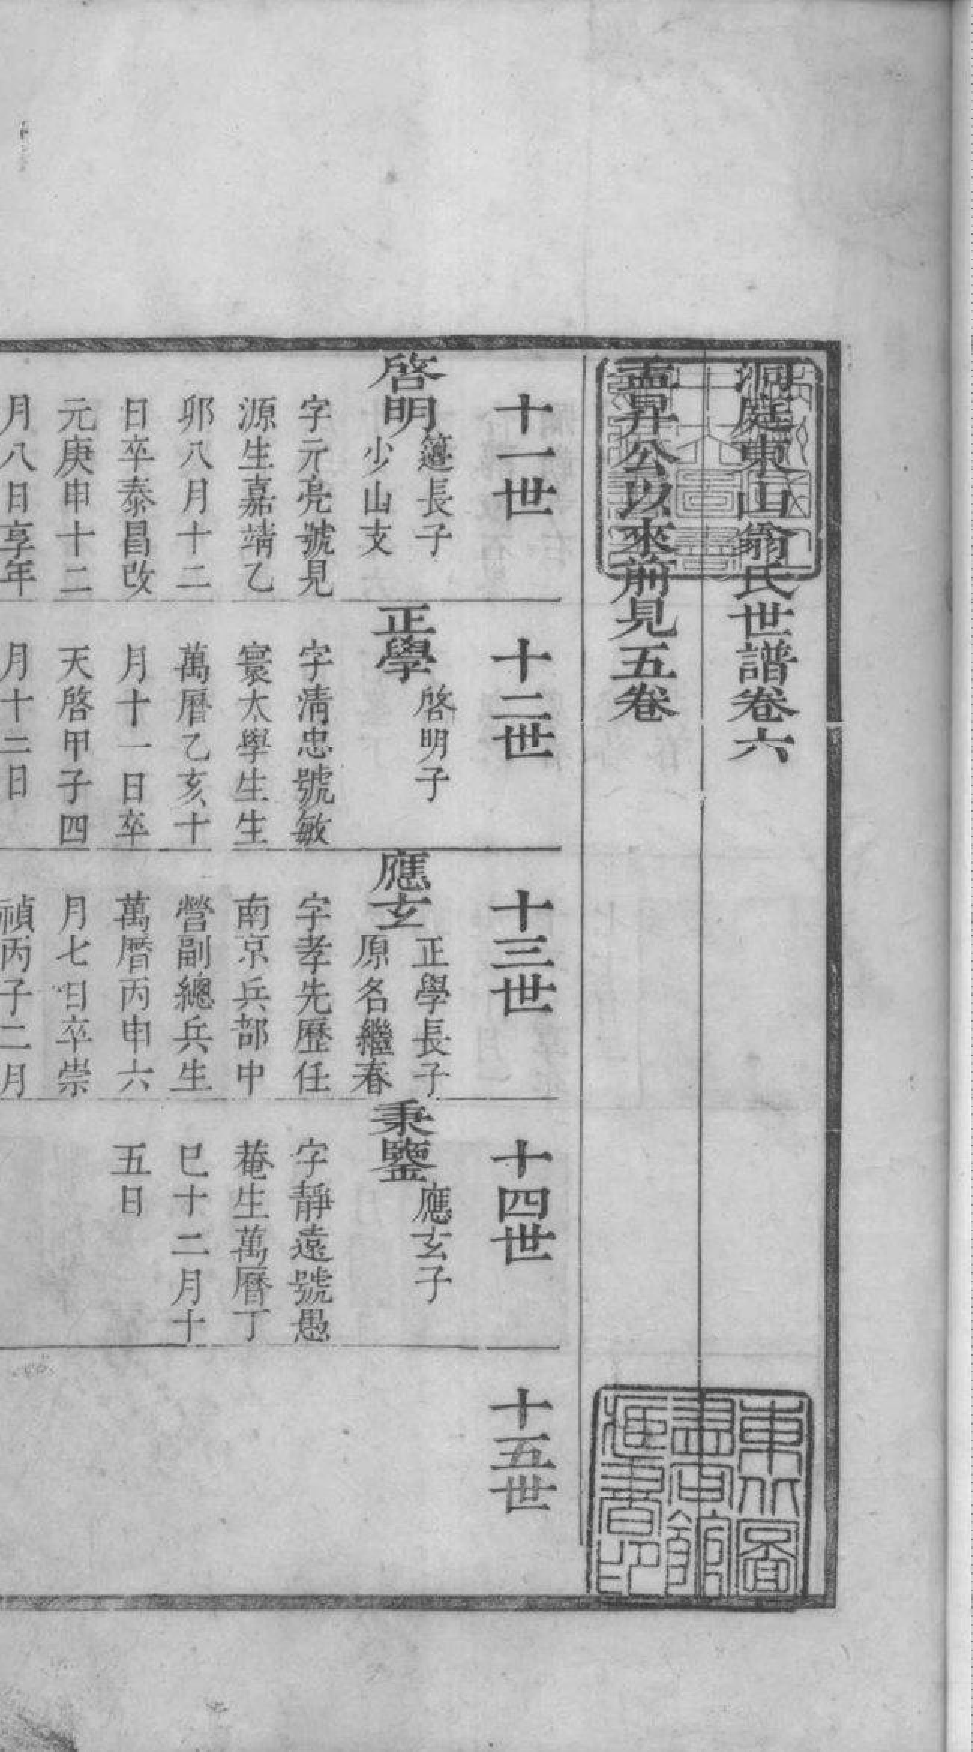 洞庭東山翁氏世譜卷六
壽昇公以來前見五卷
十一世
啓明
籩長子
少山支
字元亮號見
源生嘉靖乙
卯八月十二
日卒泰昌改
元庚申十二
月八日享年
十二世
正學
啓明子
字淸忠號敏
寰太學生生
萬曆乙亥十
月十一日卒
天啓甲子四
月十二日
十三世
應玄
正學長子
原名繼春
字孝先歷任
南京兵部中
營副總兵生
萬曆丙申六
月七日卒崇
禎丙子二月
十四世
秉鑒
應玄子
字靜遠號愚
菴生萬曆丁
巳十二月十
五日
十五世
東北圖
書館
印